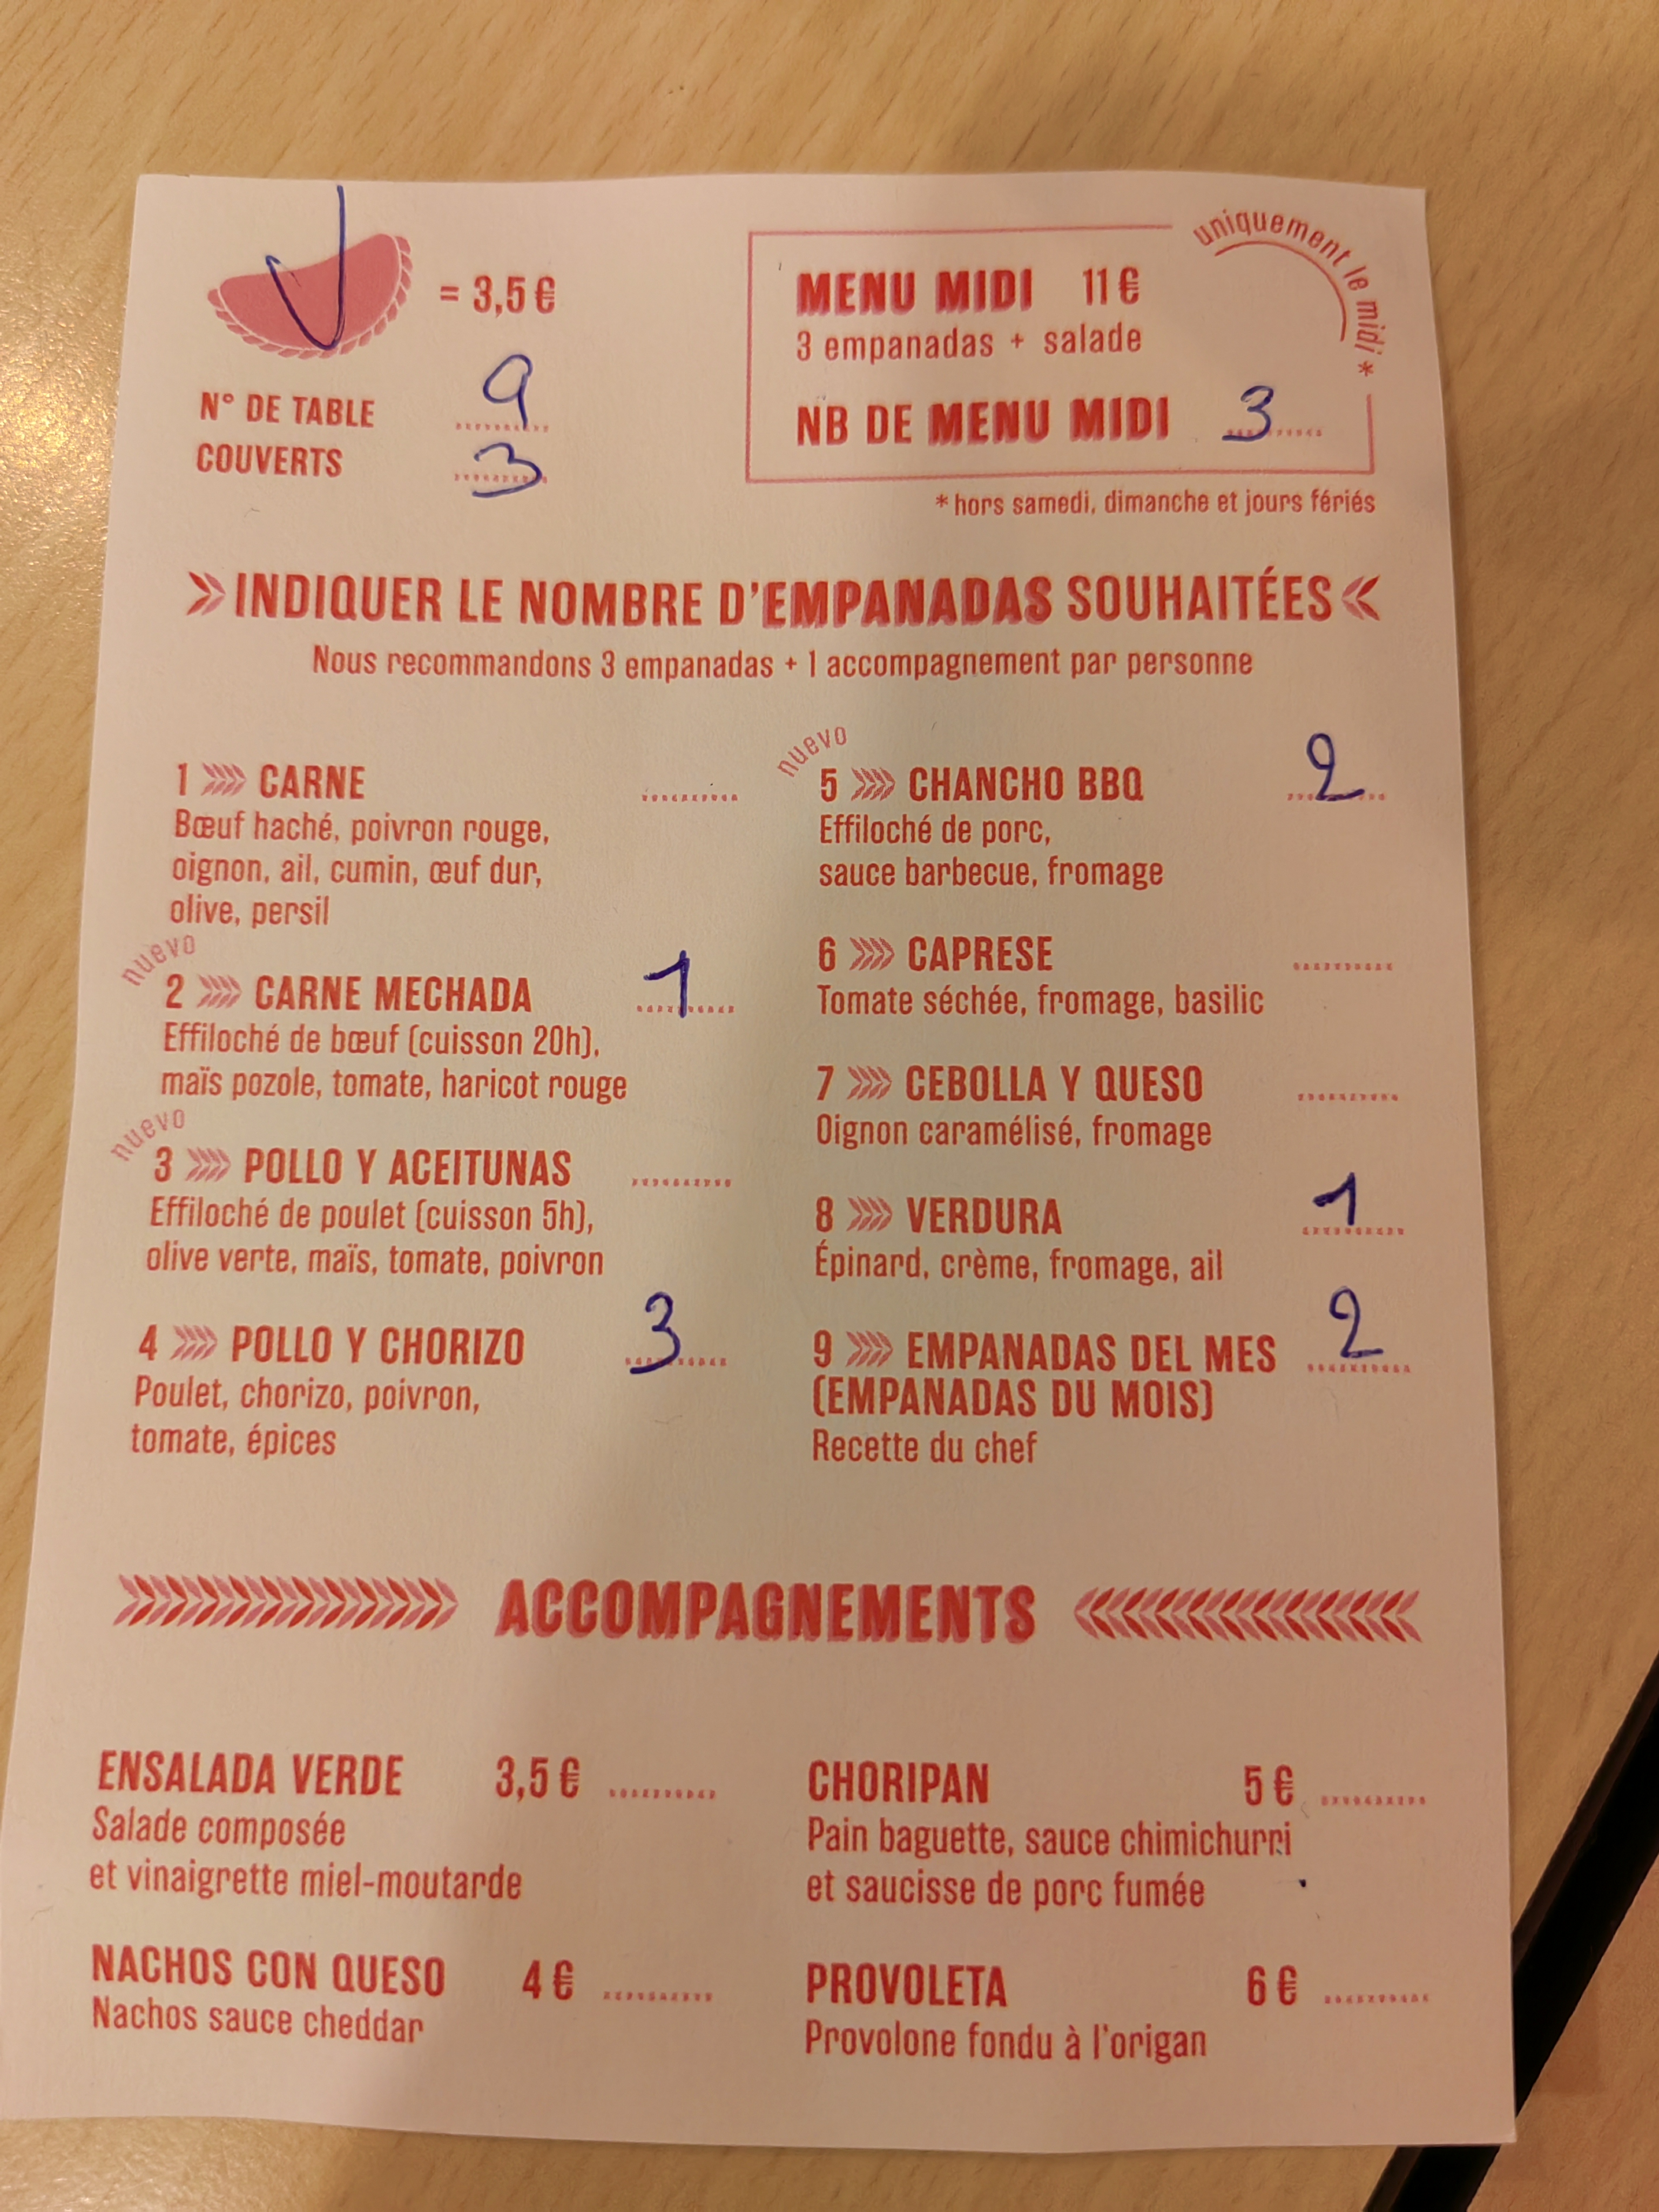 = 3,5 €
N° DE TABLE 9
COUVERTS 3
uniquement le midi *
MENU MIDI 11 €
3 empanadas + salade
NB DE MENU MIDI 3
* hors samedi, dimanche et jours fériés
INDIQUER LE NOMBRE D'EMPANADAS SOUHAITÉES
Nous recommandons 3 empanadas + 1 accompagnement par personne
1 CARNE
Bœuf haché, poivron rouge,
oignon, ail, cumin, œuf dur,
olive, persil
nuevo
2 CARNE MECHADA 1
Effiloché de bœuf (cuisson 20h),
maïs pozole, tomate, haricot rouge
nuevo
3 POLLO Y ACEITUNAS
Effiloché de poulet (cuisson 5h),
olive verte, maïs, tomate, poivron
4 POLLO Y CHORIZO 3
Poulet, chorizo, poivron,
tomate, épices
nuevo
5 CHANCHO BBQ 2
Effiloché de porc,
sauce barbecue, fromage
6 CAPRESE
Tomate séchée, fromage, basilic
7 CEBOLLA Y QUESO
Oignon caramélisé, fromage
8 VERDURA 1
Épinard, crème, fromage, ail
9 EMPANADAS DEL MES 2
(EMPANADAS DU MOIS)
Recette du chef
ACCOMPAGNEMENTS
ENSALADA VERDE 3,5 €
Salade composée
et vinaigrette miel-moutarde
NACHOS CON QUESO 4 €
Nachos sauce cheddar
CHORIPAN 5 €
Pain baguette, sauce chimichurri
et saucisse de porc fumée
PROVOLETA 6 €
Provolone fondu à l'origan